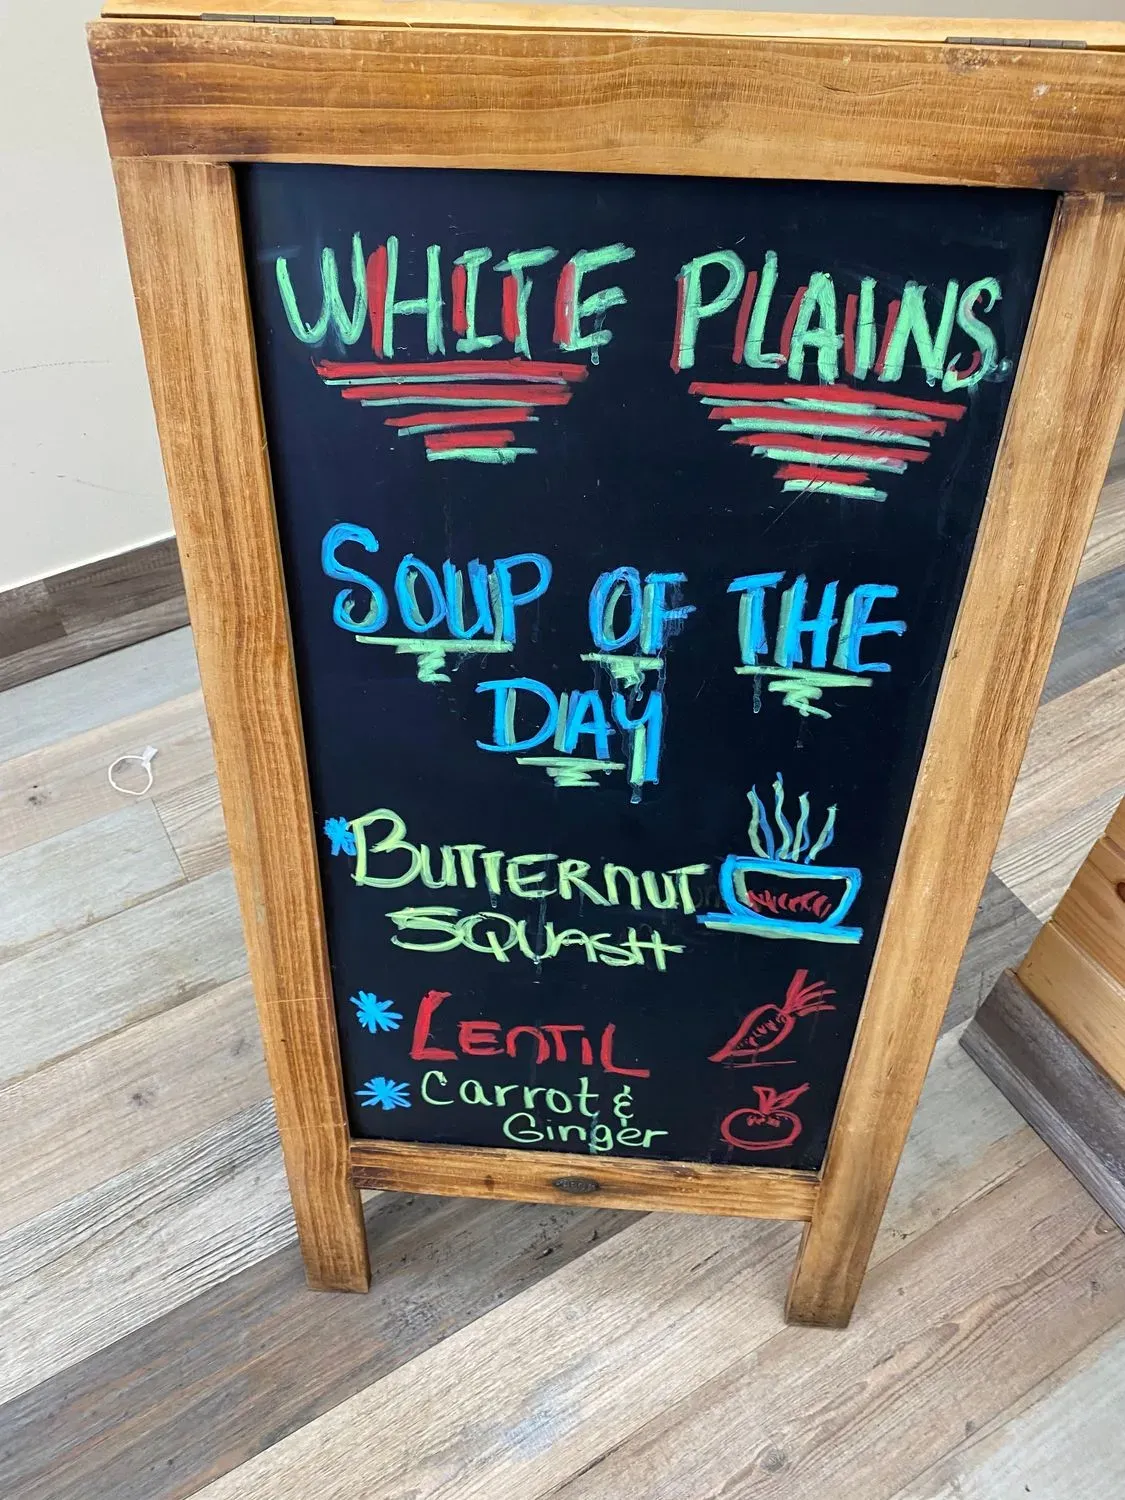 WHITE PLAINS
SOUP OF THE
DAY
*BUTTERNUT
SQUASH
* LENTIL
* Carrot &
Ginger